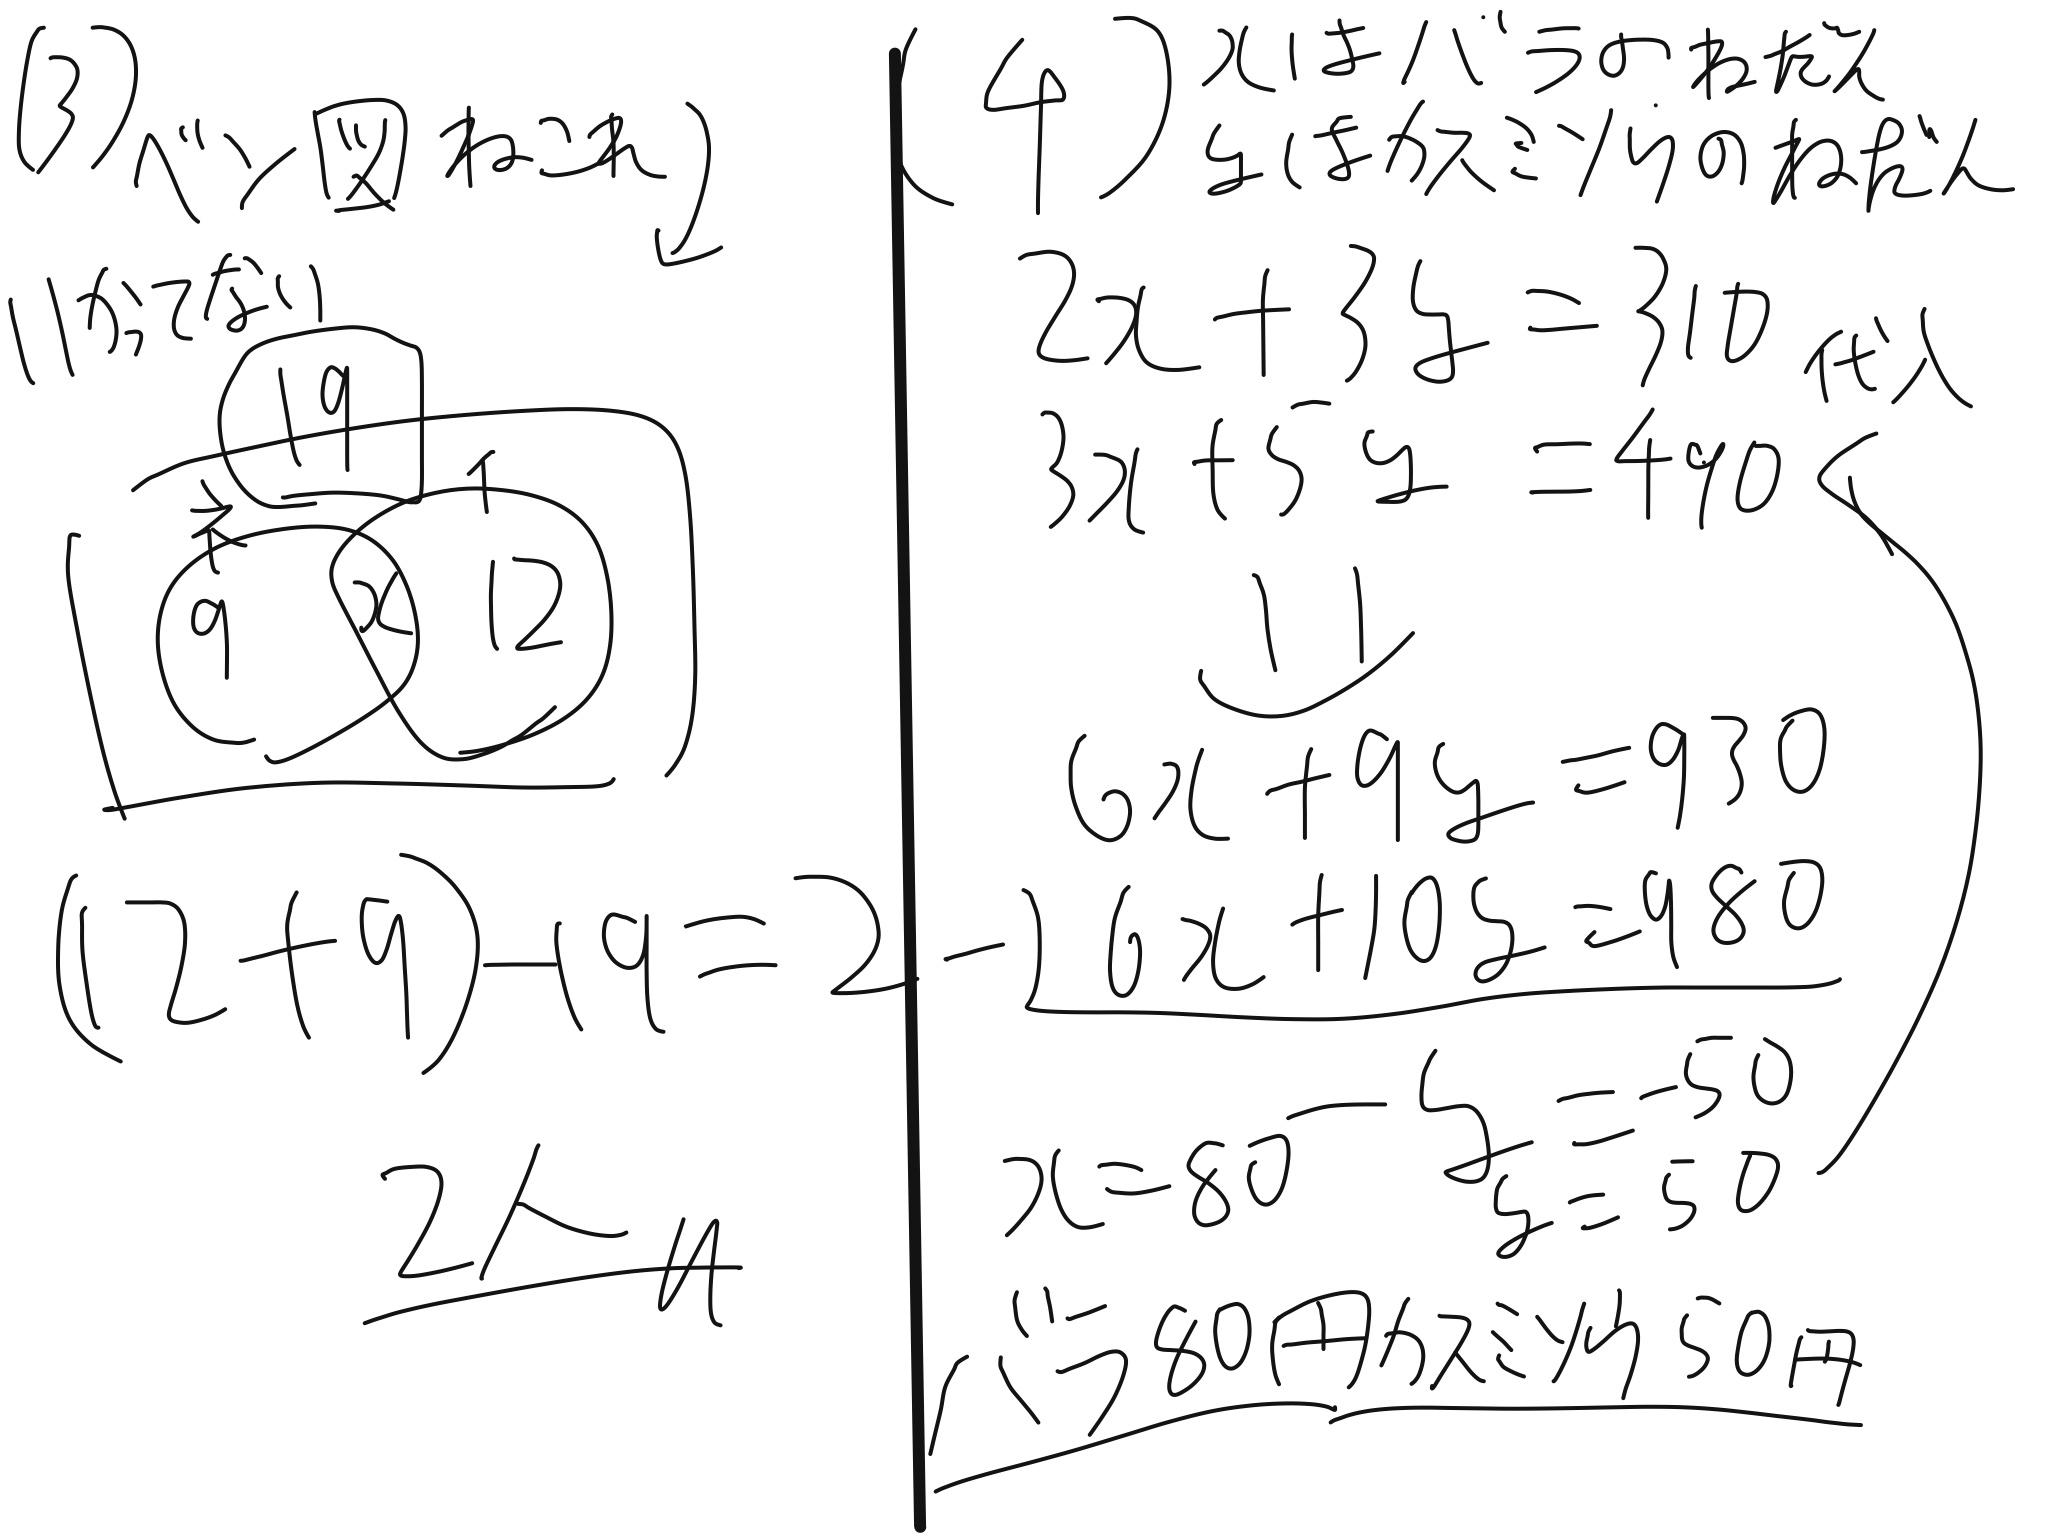 (3)
ベン図ねこれ
いがてない
19
ネ
イ
9
x
12
(12+9)-19=2
2人
(4) xはバラのねだん
yはカスミソウのねだん
2x+3y=310
代入
3x+5y=490
6x+9y=930
-)6x+10y=980
-y=-50
x=80
y=50
バラ80円カスミソウ50円